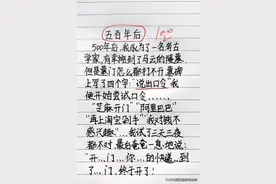 五百年后
500年后,我成为了一名考古
学家,有幸挖到了马云的陵墓
但是墓门怎么都打不开,墓碑
上写了四个字:"说出口令"我
便开始尝试口令……
"芝麻开门""阿里巴巴"
"再上淘宝剁手""我对钱不
感兴趣"…我试了三天三夜
都不对,最后爸爸一急,吼说:
"开…门…你…的快递…到
了…门,终于开了!